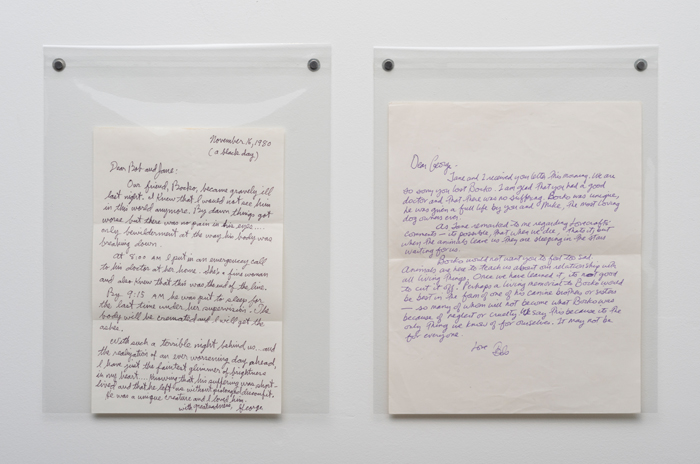 November 16, 1980
(a black day)
Dear Bob and Jane:
Our friend, Bonko, became gravely ill
last night. I knew that I would not see him
in this world anymore. By dawn things got
worse but there was no pain in his eyes....
only bewilderment at the way his body was
breaking down.
At 8:00 AM I put in an emergency call
to his doctor at her home. She's a fine woman
and also knew that this was the end of the line.
By 9:15 AM he was put to sleep for
the last time under her supervision. The
body will be cremated and I will get the
ashes.
With such a terrible night behind us... and
the realization of an ever worsening day ahead,
I have just the faintest glimmer of brightness
in my heart... knowing that his suffering was short-
lived and that he left us without prolonged discomfit.
He was a unique creature and I loved him.
with gratitude, George
Dear George -
Jane and I received your letter this morning. We are
so sorry you lost Bonko. I am glad that you had a good
doctor and that there was no suffering. Bonko was unique,
he was given a full life by you and Mike, the most loving
dog owners ever.
As Jane remarked to me regarding Lovecraft's
comments - its possible, that when we die, thats it, but
when the animals leave us they are sleeping in the stars
waiting for us.
Bonko would not want you to feel too sad.
Animals are here to teach us about our relationship with
all living things. Once we have learned it, its not good
to cut it off. Perhaps a living memorial to Bonko would
be best in the form of one of his canine brothers or sisters
— so many of whom will not become what Bonko was
because of neglect or cruelty. We say this because its the
only thing we know of for ourselves. It may not be
for everyone.
Love
Bob